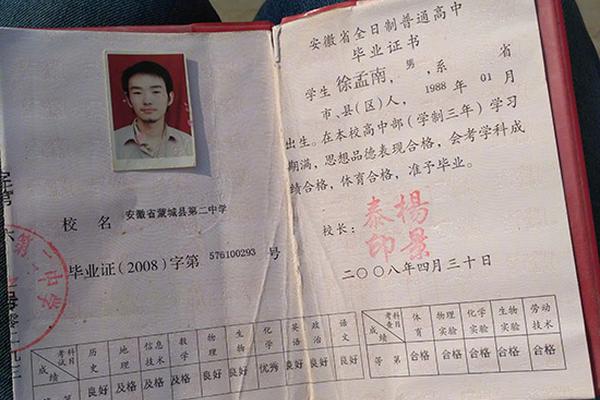 校名 安徽省蒙城县第二中学
毕业证(2008)字第 576100293 号
考试科目 历史 地理 信息技术 数学 物理 生物 化学 英语 政治 语文
成绩 良好 及格 及格 及格 良好 良好 优秀 良好 良好 良好
安徽省全日制普通高中
毕业证书
学生 徐孟南,男,系 省
市、县(区)人, 1988 年 01 月
出生。在本校高中部(学制三年)学习
期满,思想品德表现合格,会考学科成
绩合格,体育合格,准予毕业。
校长:
楊景
泰印
二〇〇八年四月三十日
考查科目 体育 物理实验 化学实验 生物实验 劳动技术
成绩
等第 合格 合格 合格 合格 合格
第二中学